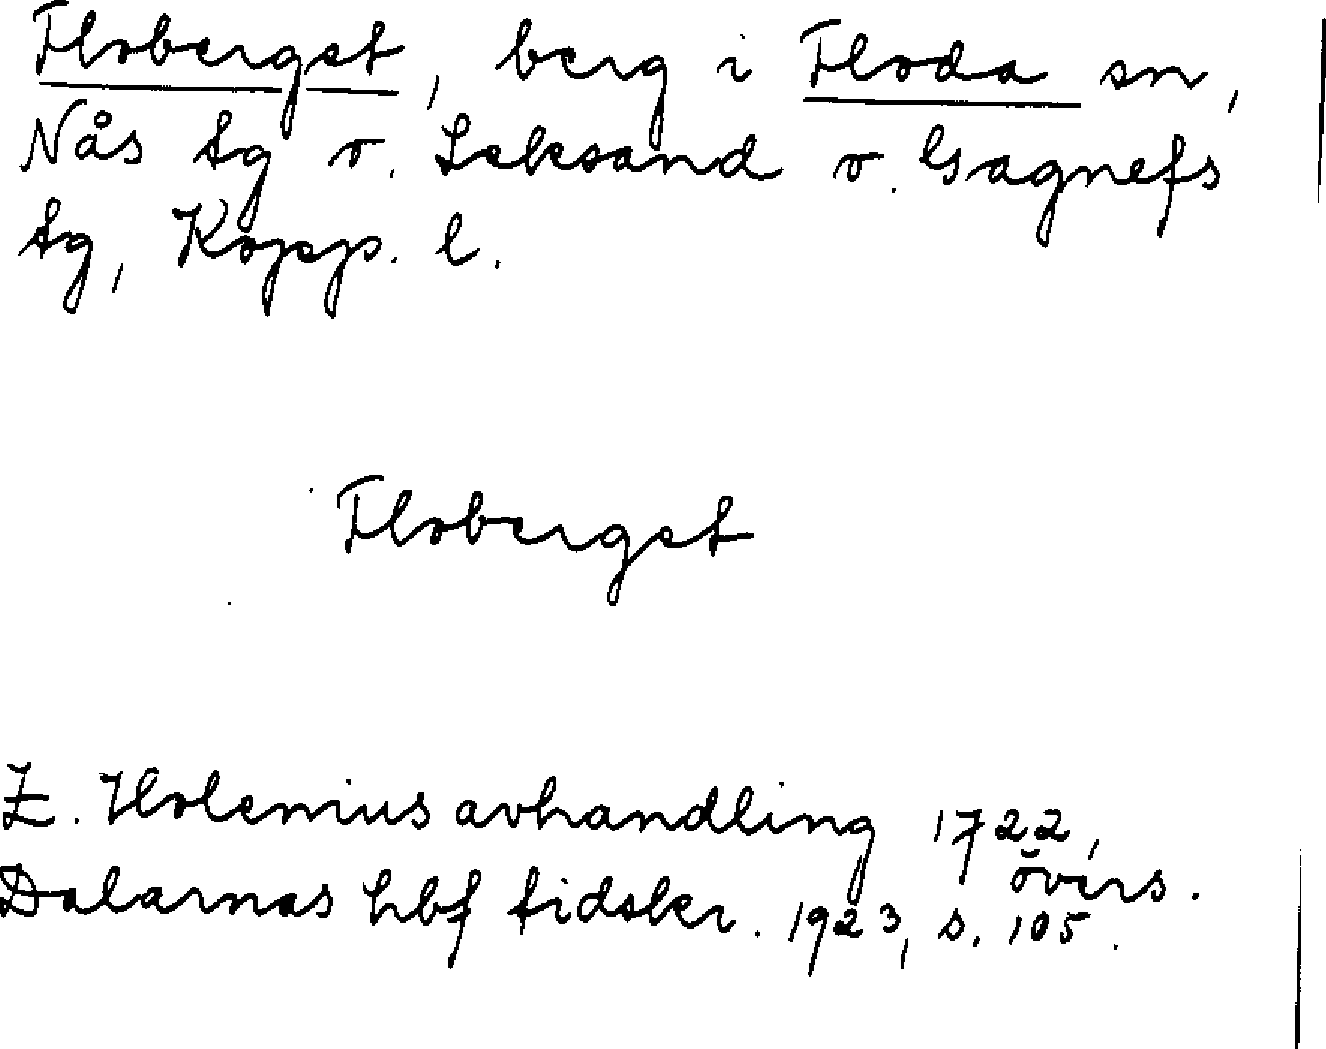 Floberget, berg i Floda sn,
Nås tg o. Leksand o. Gagnefs
tg, Kopp. l.
Floberget
E. Holenius avhandling 1722,
övers.
Dalarnas hbf tidskr. 1923, s. 105.